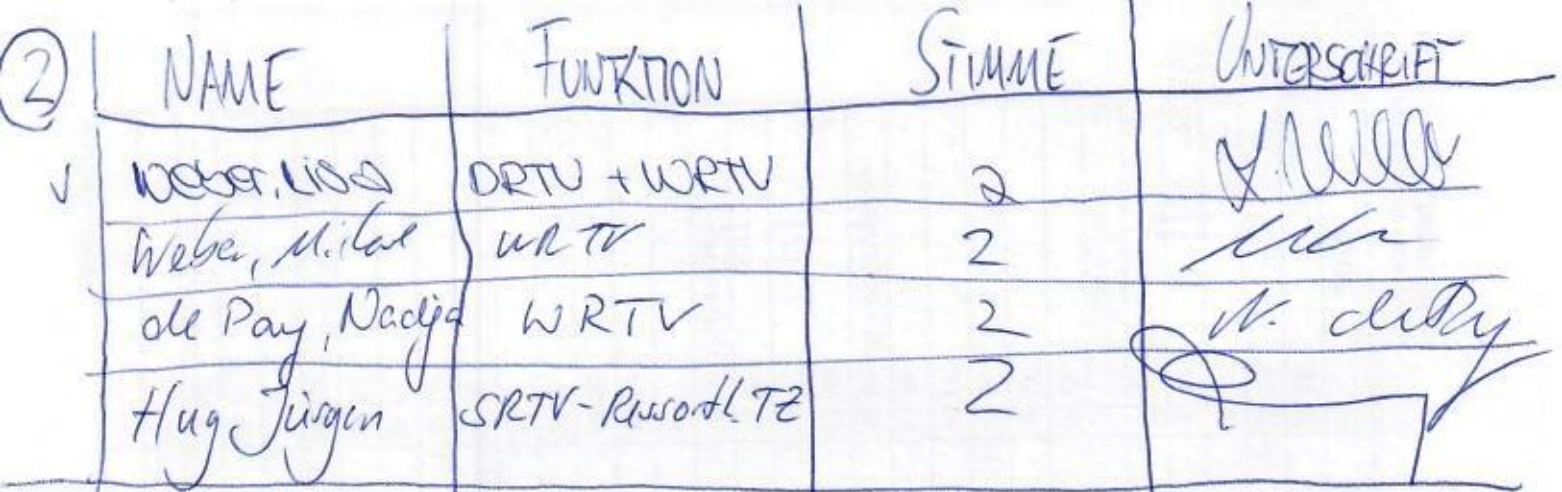 ② NAME FUNKTION STIMME UNTERSCHRIFT
✓ Weber, Lisa DRTV + WRTV 2
Weber, WRTV 2
de Pay, Nadja WRTV 2 N. de Pay
Hug Jürgen SRTV-Ressortl. TZ 2